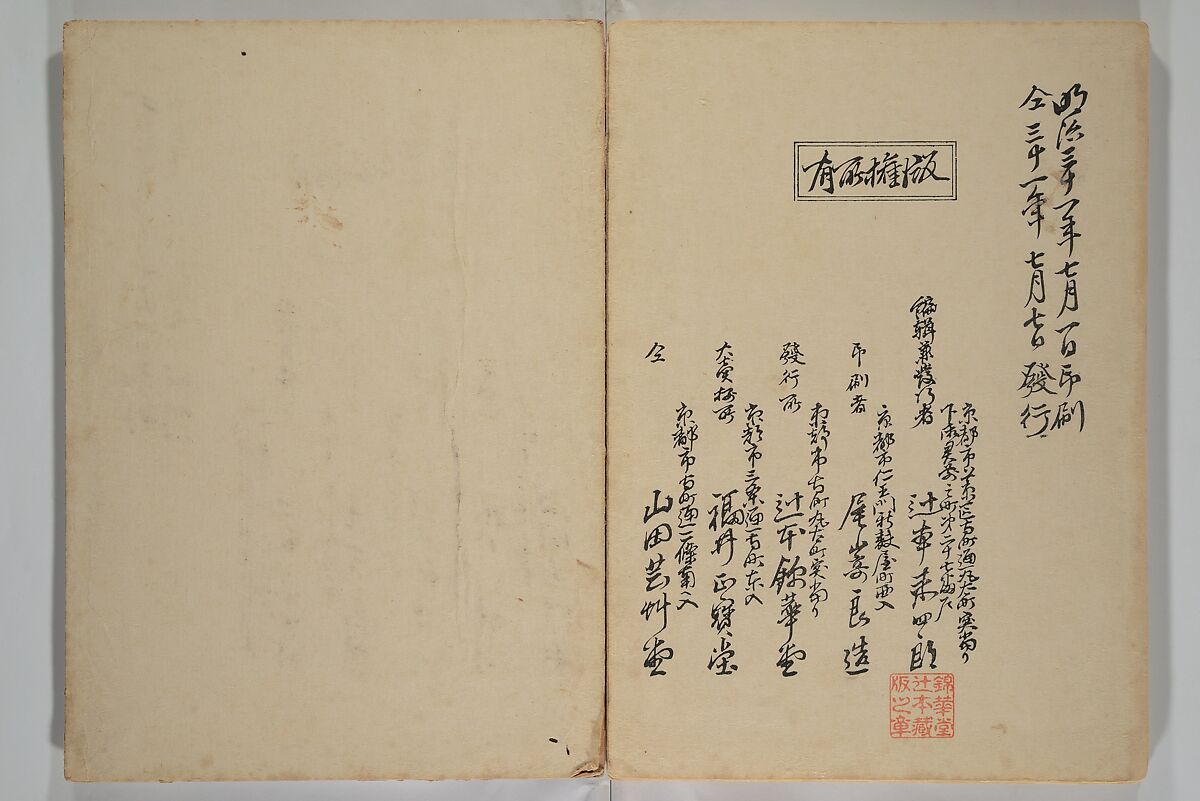 明治三十一年七月一日印刷
仝三十一年七月七日發行
版權所有
編輯兼發行者
京都市上京區寺町通丸太町突當り
下御靈前之町第二十七番戸
辻本末四郎
印刷者
京都市仁王門新麩屋町西入
尾嵜良造
發行所
京都市寺町丸太町突當り
辻本錦華堂
大賣捌所
京都市三条通寺町東入
福井正寶堂
仝
京都市寺町通二條南入
山田芸艸堂
錦華堂
辻本藏
版之章